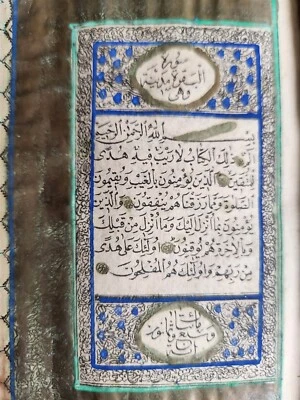 سورة
البقرة مدنية
وهي
بسم الله الرحمن الرحيم
ذلك الكتاب لا ريب فيه هدى
للمتقين الذين يؤمنون بالغيب ويقيمون
الصلوة ومما رزقناهم ينفقون والذين
يؤمنون بما انزل اليك وما انزل من قبلك
وبالاخرة هم يوقنون اولئك على هدى
من ربهم واولئك هم المفلحون
مائتان
وست وثمانون